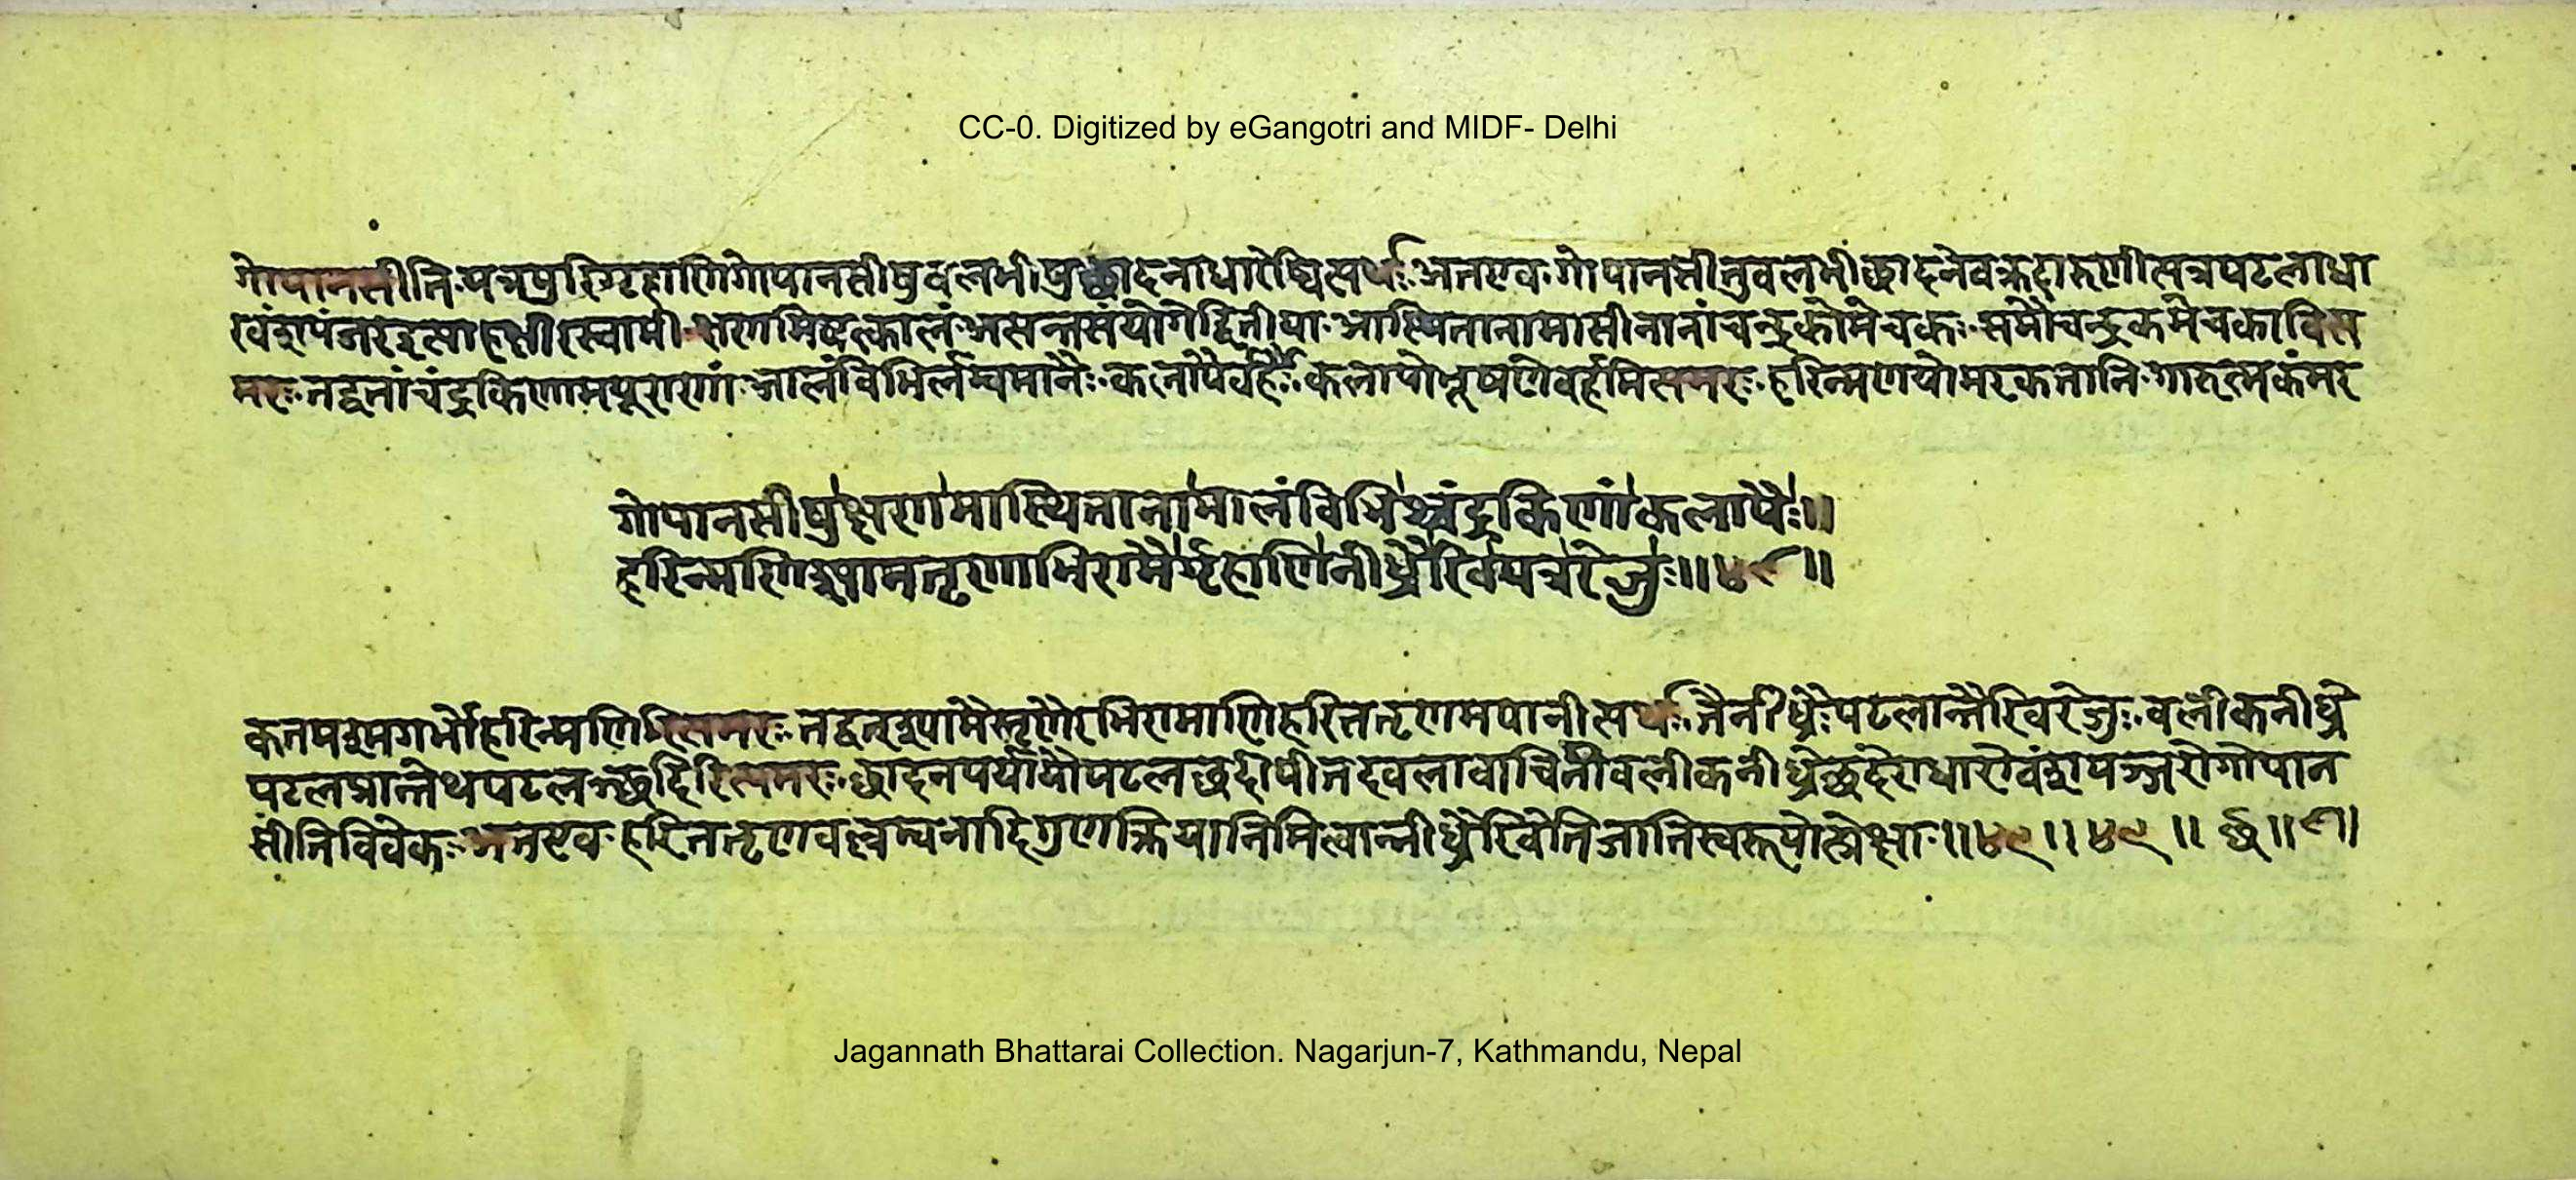 CC-0. Digitized by eGangotri and MIDF- Delhi
गोपानसीति पत्रपुरिगृहाणिगोपानसीषुवलभीषुछादनाधारेष्वित्यर्थः अतएव गोपानसीतुवलभीछादनेवक्रदारुणीत्यत्रपटलाधा
रवंशपंजरइत्याहक्षीरस्वामी क्षणमिषत्कालं अत्यन्तसंयोगेद्वितीया आस्थितानामासीनानांचन्द्रकोमेचकः समौचन्द्रकमेचकावित्य
मरः तद्वतांचंद्रकिणामयूराणां आलंविभिर्लम्वमानैः कलापैर्वर्हैः कलापोभूषणेवर्हमित्यमरः हरिन्मणयोमरकतानि गारुत्मकंमर
गोपानसीषुक्षणमास्थितानामालंविभिश्चंद्रकिणांकलापैः॥
हरिन्मणिश्यामतृणाभिरामैर्गृहाणिनीध्रैरिवयत्ररेजुः॥४९॥
कतमश्मगर्भोहरिन्मणिरित्यमरः तद्वत्श्यामैस्तृणैरभिरामाणिहरिततृणमयानीत्यर्थः तैर्नीध्रैः पटलान्तैरिवरेजुः वलीकनीध्रे
पटलप्रान्तेथपटलञ्छदिरित्यमरः छादनपर्यायौपटलछदीषीतदवलावाचिनीवलीकनीध्रेछदेराधारोवंशपञ्जरोगोपान
सीतिविवेकः अतएव हरिततृणवत्वेत्यनादिगुणक्रियानिमित्तान्नीध्रैरिवेतिजातिस्वरूपोत्प्रेक्षा ॥४९॥४९॥
Jagannath Bhattarai Collection. Nagarjun-7, Kathmandu, Nepal